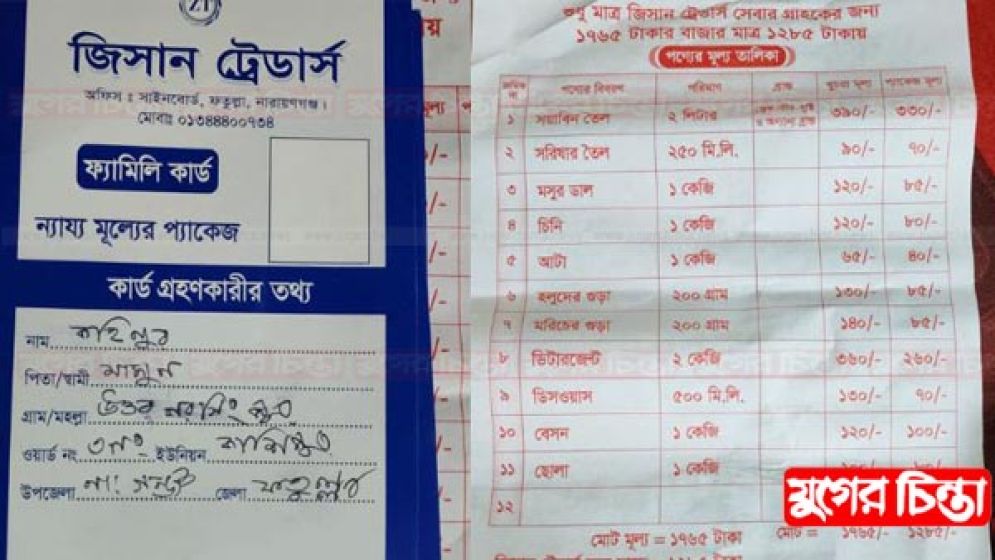 ZT
জিসান ট্রেডার্স
অফিস : সাইনবোর্ড, ফতুল্লা, নারায়ণগঞ্জ।
মোবাঃ ০১৩৪৪৪০০৭৩৪
ফ্যামিলি কার্ড
ন্যায্য মূল্যের প্যাকেজ
কার্ড গ্রহণকারীর তথ্য
নাম
পিতা/স্বামী মাসুন
গ্রাম/মহল্লা উত্তর নরসিংপুর
ওয়ার্ড নং ৩নং ইউনিয়ন কাশিপুর
উপজেলা না: সদর জেলা
শুধু মাত্র জিসান ট্রেডার্স সেবার গ্রাহকের জন্য
১৭৬৫ টাকার বাজার মাত্র ১২৮৫ টাকায়
পণ্যের মূল্য তালিকা
ক্রমিক নং পণ্যের বিবরণ পরিমাণ ব্রান্ড খুচরা মূল্য প্যাকেজ মূল্য
১ সয়াবিন তৈল ২ লিটার ৩৯০/- ৩৩০/-
২ সরিষার তৈল ২৫০ মি.লি. ৯০/- ৭০/-
৩ মসুর ডাল ১ কেজি ১২০/- ৮৫/-
৪ চিনি ১ কেজি ১২০/- ৮০/-
৫ আটা ১ কেজি ৬৫/- ৪০/-
৬ হলুদের গুড়া ২০০ গ্রাম ১৩০/- ৮৫/-
৭ মরিচের গুড়া ২০০ গ্রাম ১৪০/- ৮৫/-
৮ ডিটারজেন্ট ২ কেজি ৩৬০/- ২৬০/-
৯ ডিসওয়াস ৫০০ মি.লি. ১৩০/- ৭০/-
১০ বেসন ১ কেজি ১২০/- ১০০/-
১১ ছোলা ১ কেজি
১২
মোট মূল্য = ১৭৬৫ টাকা মোট = ১৭৬৫/- ১২৮৫/-
যুগের চিন্তা